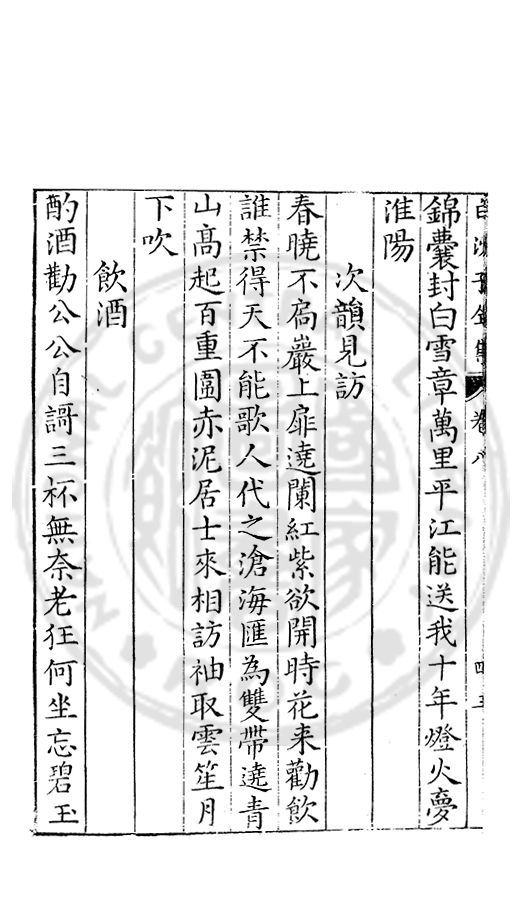 白沙子全集 卷八 四五
錦囊封白雪章萬里平江能送我十年燈火夢
淮陽
次韻見訪
春曉不扃巖上扉遶闌紅紫欲開時花来勸飲
誰禁得天不能歌人代之滄海匯為雙帶遶青
山高起百重圍赤泥居士來相訪袖取雲笙月
下吹
飲酒
酌酒勸公公自謌三杯無奈老狂何坐忘碧玉